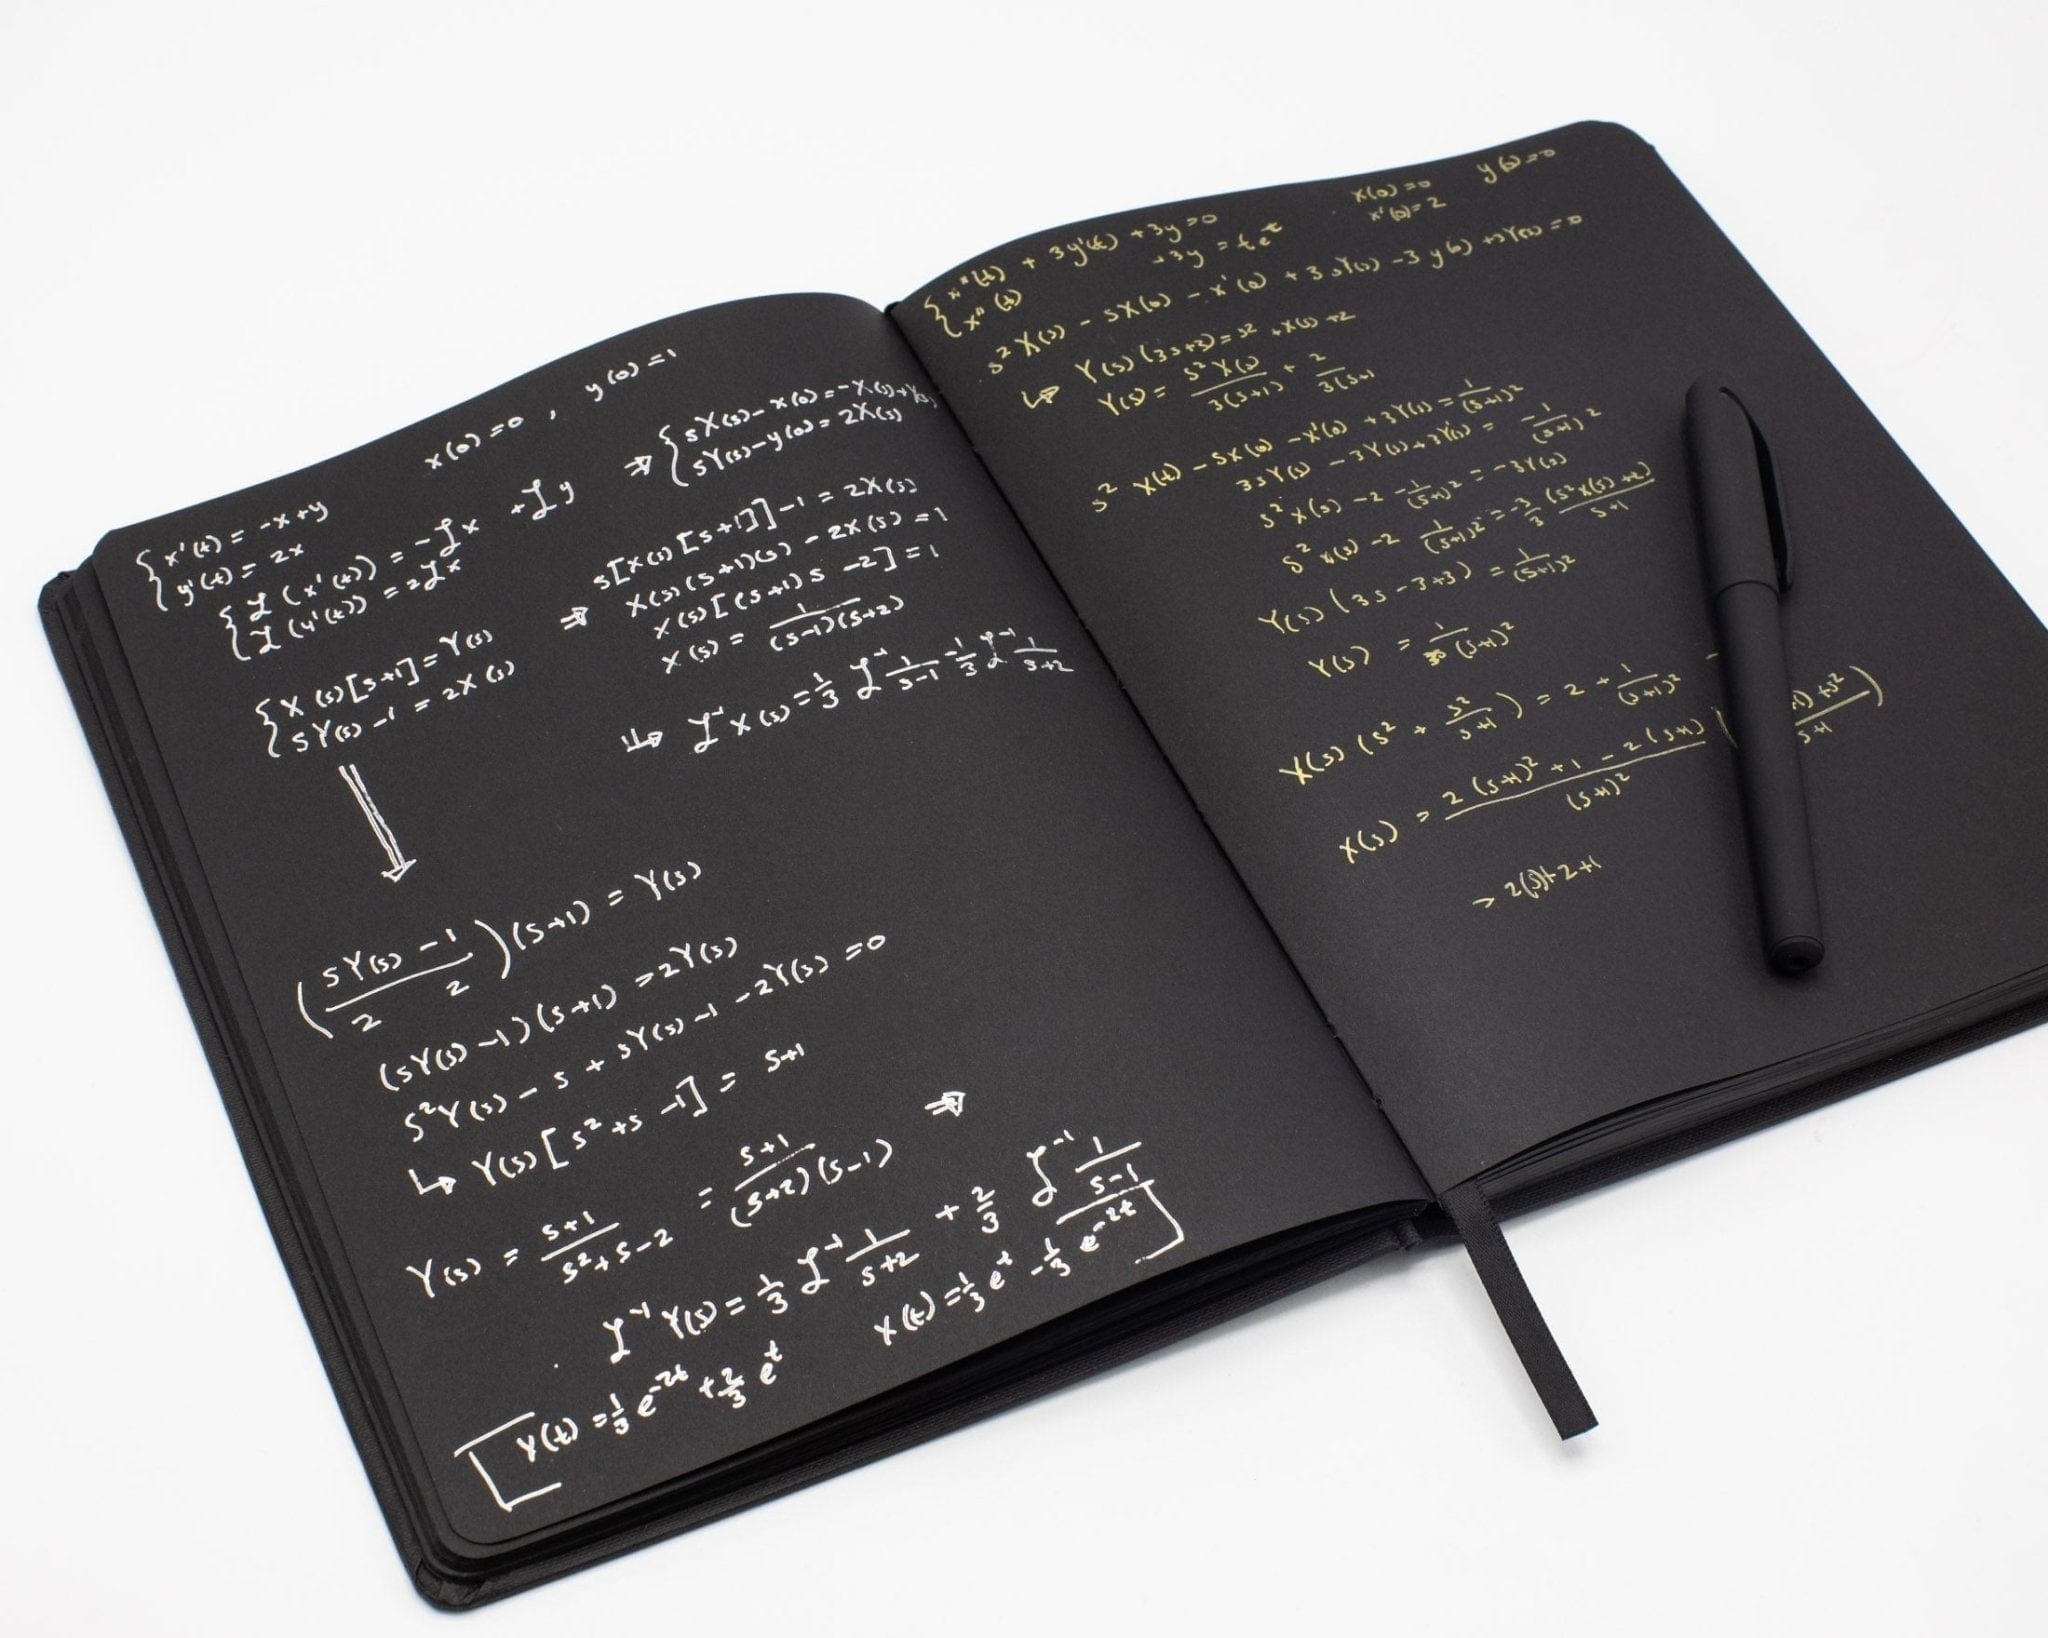 x(0)=0 , y(0)=1
{ x'(t) = -x+y
y'(t) = 2x
{ ℒ(x'(t)) = -ℒx + ℒy
ℒ(y'(t)) = 2ℒx
{ X(s)[s+1] = Y(s)
sY(s) - 1 = 2X(s)
⇒ { sX(s) - x(0) = -X(s)+Y(s)
sY(s) - y(0) = 2X(s)
⇒ s[X(s)[s+1]] - 1 = 2X(s)
X(s)(s+1)(s) - 2X(s) = 1
X(s)[(s+1)s - 2] = 1
X(s) = 1/((s-1)(s+2))
↳ ℒ⁻¹X(s) = 1/3 ℒ⁻¹ 1/(s-1) - 1/3 ℒ⁻¹ 1/(s+2)
((sY(s) - 1)/2 2)(s+1) = Y(s)
(sY(s) - 1)(s+1) = 2Y(s)
s²Y(s) - s + sY(s) - 1 - 2Y(s) = 0
↳ Y(s)[s²+s-1] = s+1
Y(s) = (s+1)/(s²+s-2) = (s+1)/((s+2)(s-1)) ⇒
ℒ⁻¹Y(s) = 1/3 ℒ⁻¹ 1/(s+2) + 2/3 ℒ⁻¹ 1/(s-1)
y(t) = 1/3 e^(-2t) + 2/3 e^t
x(t) = 1/3 e^t - 1/3 e^(-2t)
x(0)=0 y(0)=0
x'(0)=2
{ x''(t) + 3y'(t) + 3y = 0
x''(t) +3y = te^t
s²X(s) - sX(0) - x'(0) + 3sY(s) - 3y(0) + 3Y(s) = 0
↳ Y(s)(3s+3) = s² + X(s) + 2
Y(s) = s²X(s)/(3(s+1)) + 2/(3(s+1
s² X(t) - sX(0) - x'(0) + 3Y(s) = 1/(s+1)²
3sY(s) - 3Y(s) + 3Y(s) = -1/(s+1)²
s²X(s) - 2 - 1/(s+1)² = -3Y(s)
s²X(s) - 2 1/(s+1)² = -3/3 (s²X(s)+2)/(s+1)
Y(s)(3s-3+3) = 1/(s+1)²
Y(s) = 1/(3s(s+1)²)
X(s)(s² + s²/(s+1)) = 2 + 1/(s+1)² -
X(s) = (2(s+1)² + 1 - 2(s+1))/(s+1)²
→ 2(s)+2+1